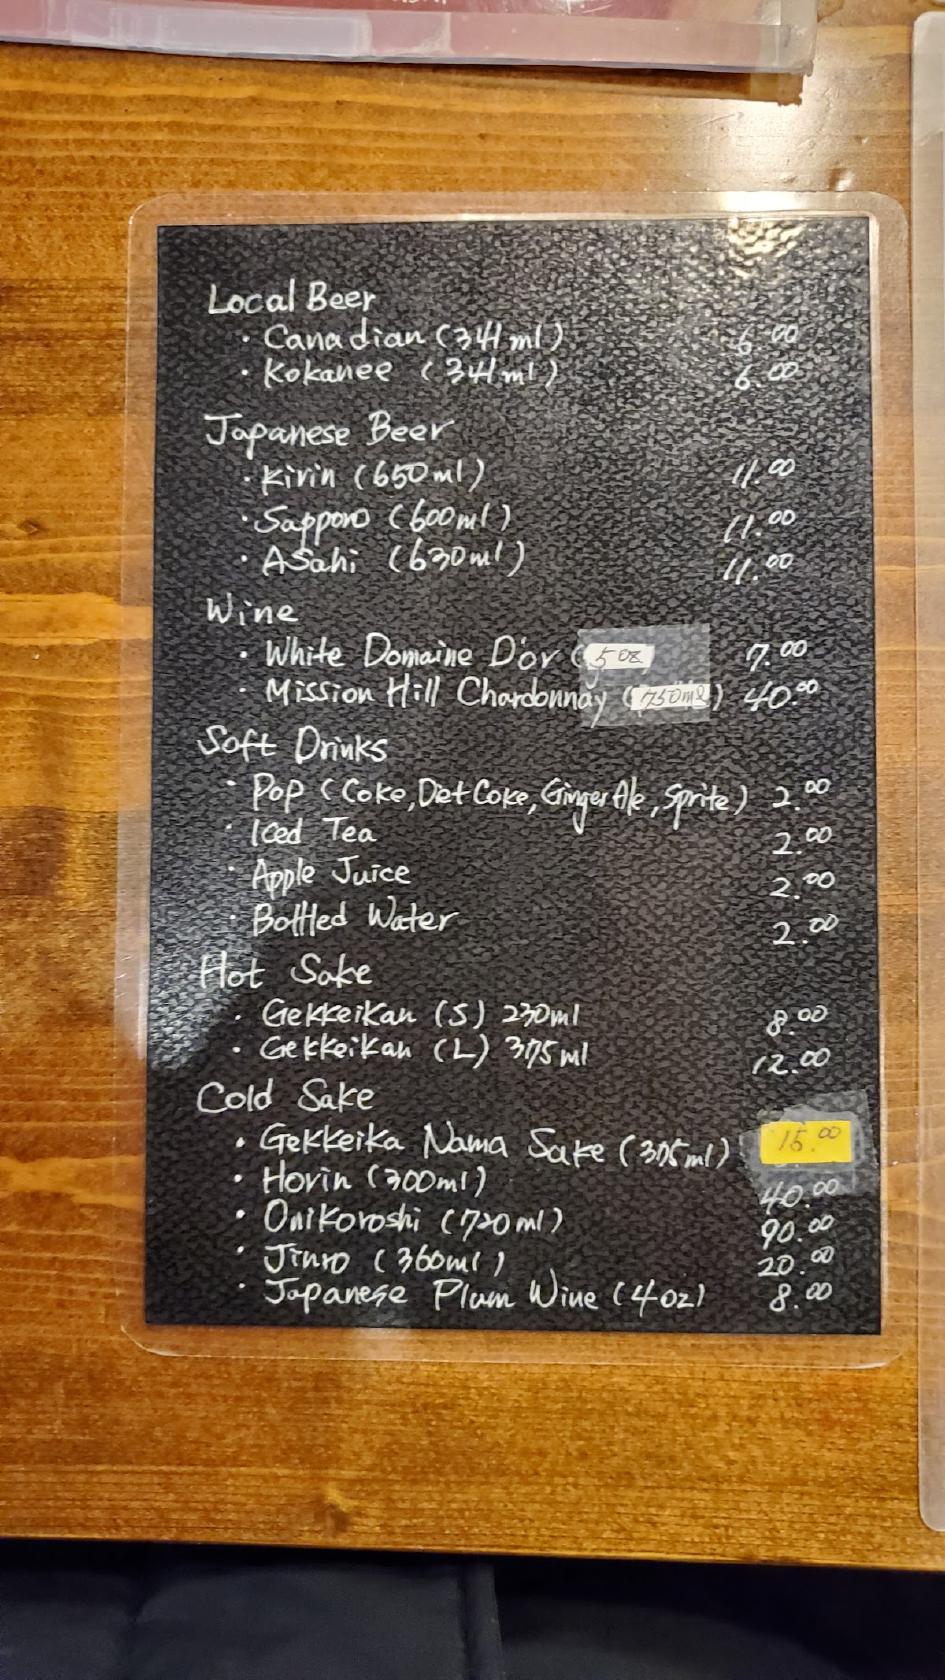 Local Beer
· Canadian (341ml) 6.00
· Kokanee (341ml) 6.00
Japanese Beer
· Kirin (650ml) 11.00
· Sapporo (600ml) 11.00
· Asahi (630ml) 11.00
Wine
· White Domaine D'or (5oz 7.00
· Mission Hill Chardonnay (750ml) 40.00
Soft Drinks
· Pop (Coke, Diet Coke, Ginger Ale, Sprite) 2.00
· Iced Tea 2.00
· Apple Juice 2.00
· Bottled Water 2.00
Hot Sake
· Gekkeikan (S) 230ml 8.00
· Gekkeikan (L) 375ml 12.00
Cold Sake
· Gekkeika Nama Sake (375ml) 15.00
· Horin (300ml) 40.00
· Onikoroshi (720ml) 90.00
· Jinro (360ml) 20.00
· Japanese Plum Wine (4oz) 8.00